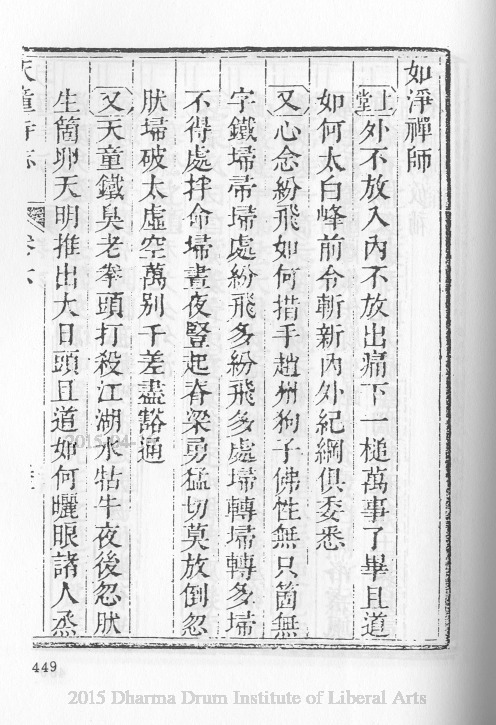 如淨禪師
上堂外不放入內不放出痛下一槌萬事了畢且道
如何太白峰前令斬新內外紀綱俱委悉
又心念紛飛如何措手趙州狗子佛性無只箇無
字鐵埽帚埽處紛飛多紛飛多處埽轉埽轉多埽
不得處拌命埽晝夜豎起脊梁勇猛切莫放倒忽
肰埽破太虛空萬別千差盡豁通
又天童鐵臭老拳頭打殺江湖水牯牛夜後忽肰
生箇卵天明推出大日頭且道如何曬眼諸人烝
天童寺志
卷六
449
2015 Dharma Drum Institute of Liberal Arts